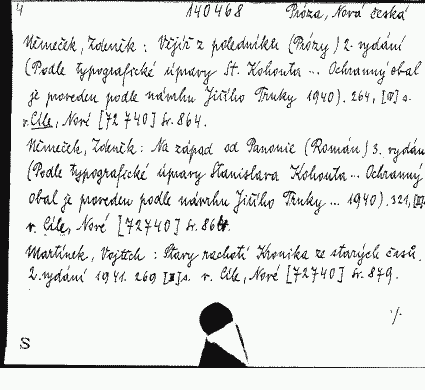 4 140468 Próza, Nová česká
Němeček, Zdeněk: Vějíř z poledníků (Prózy) 2. vydání
(Podle typografické úpravy St. Kohouta ... Ochranný obal
je proveden podle návrhu Jiřího Trnky 1940). 264, s.
v. Cíle, Nové [72740] Sv. 864.
Němeček, Zdeněk: Na západ od Panonie (Román) 3. vydán
(Podle typografické úpravy Stanislava Kohouta ... Ochranný
obal je proveden podle návrhu Jiřího Trnky ... 1940). 321, [II]
v. Cíle, Nové [72740] Sv.
Martínek, Vojtěch: Stavy rachotí Kronika ze starých časů.
2. vydání 1941. 269 [II] s. v. Cíle, Nové [72740] Sv. 879.
./.
S